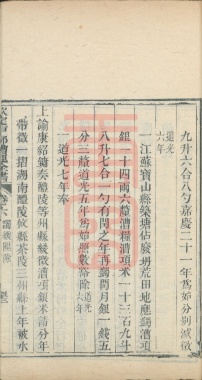 九升六合八勺嘉慶二十一年爲始分別減徵
道光
六年
一江蘇寶山縣築塘佔廢坍荒田地應蠲漕項
銀一十四兩六釐漕糧漕項米一十三石九斗
八升七合一勺有閏之年再蠲閏月銀一錢五
分三釐道光五年爲始照數豁除道光
六年
一道光七年奉
上諭康紹鏞奏醴陵等州縣緩徵漕項銀米請分年
帶徵一摺湖南醴陵攸縣茶陵三州縣上年被水